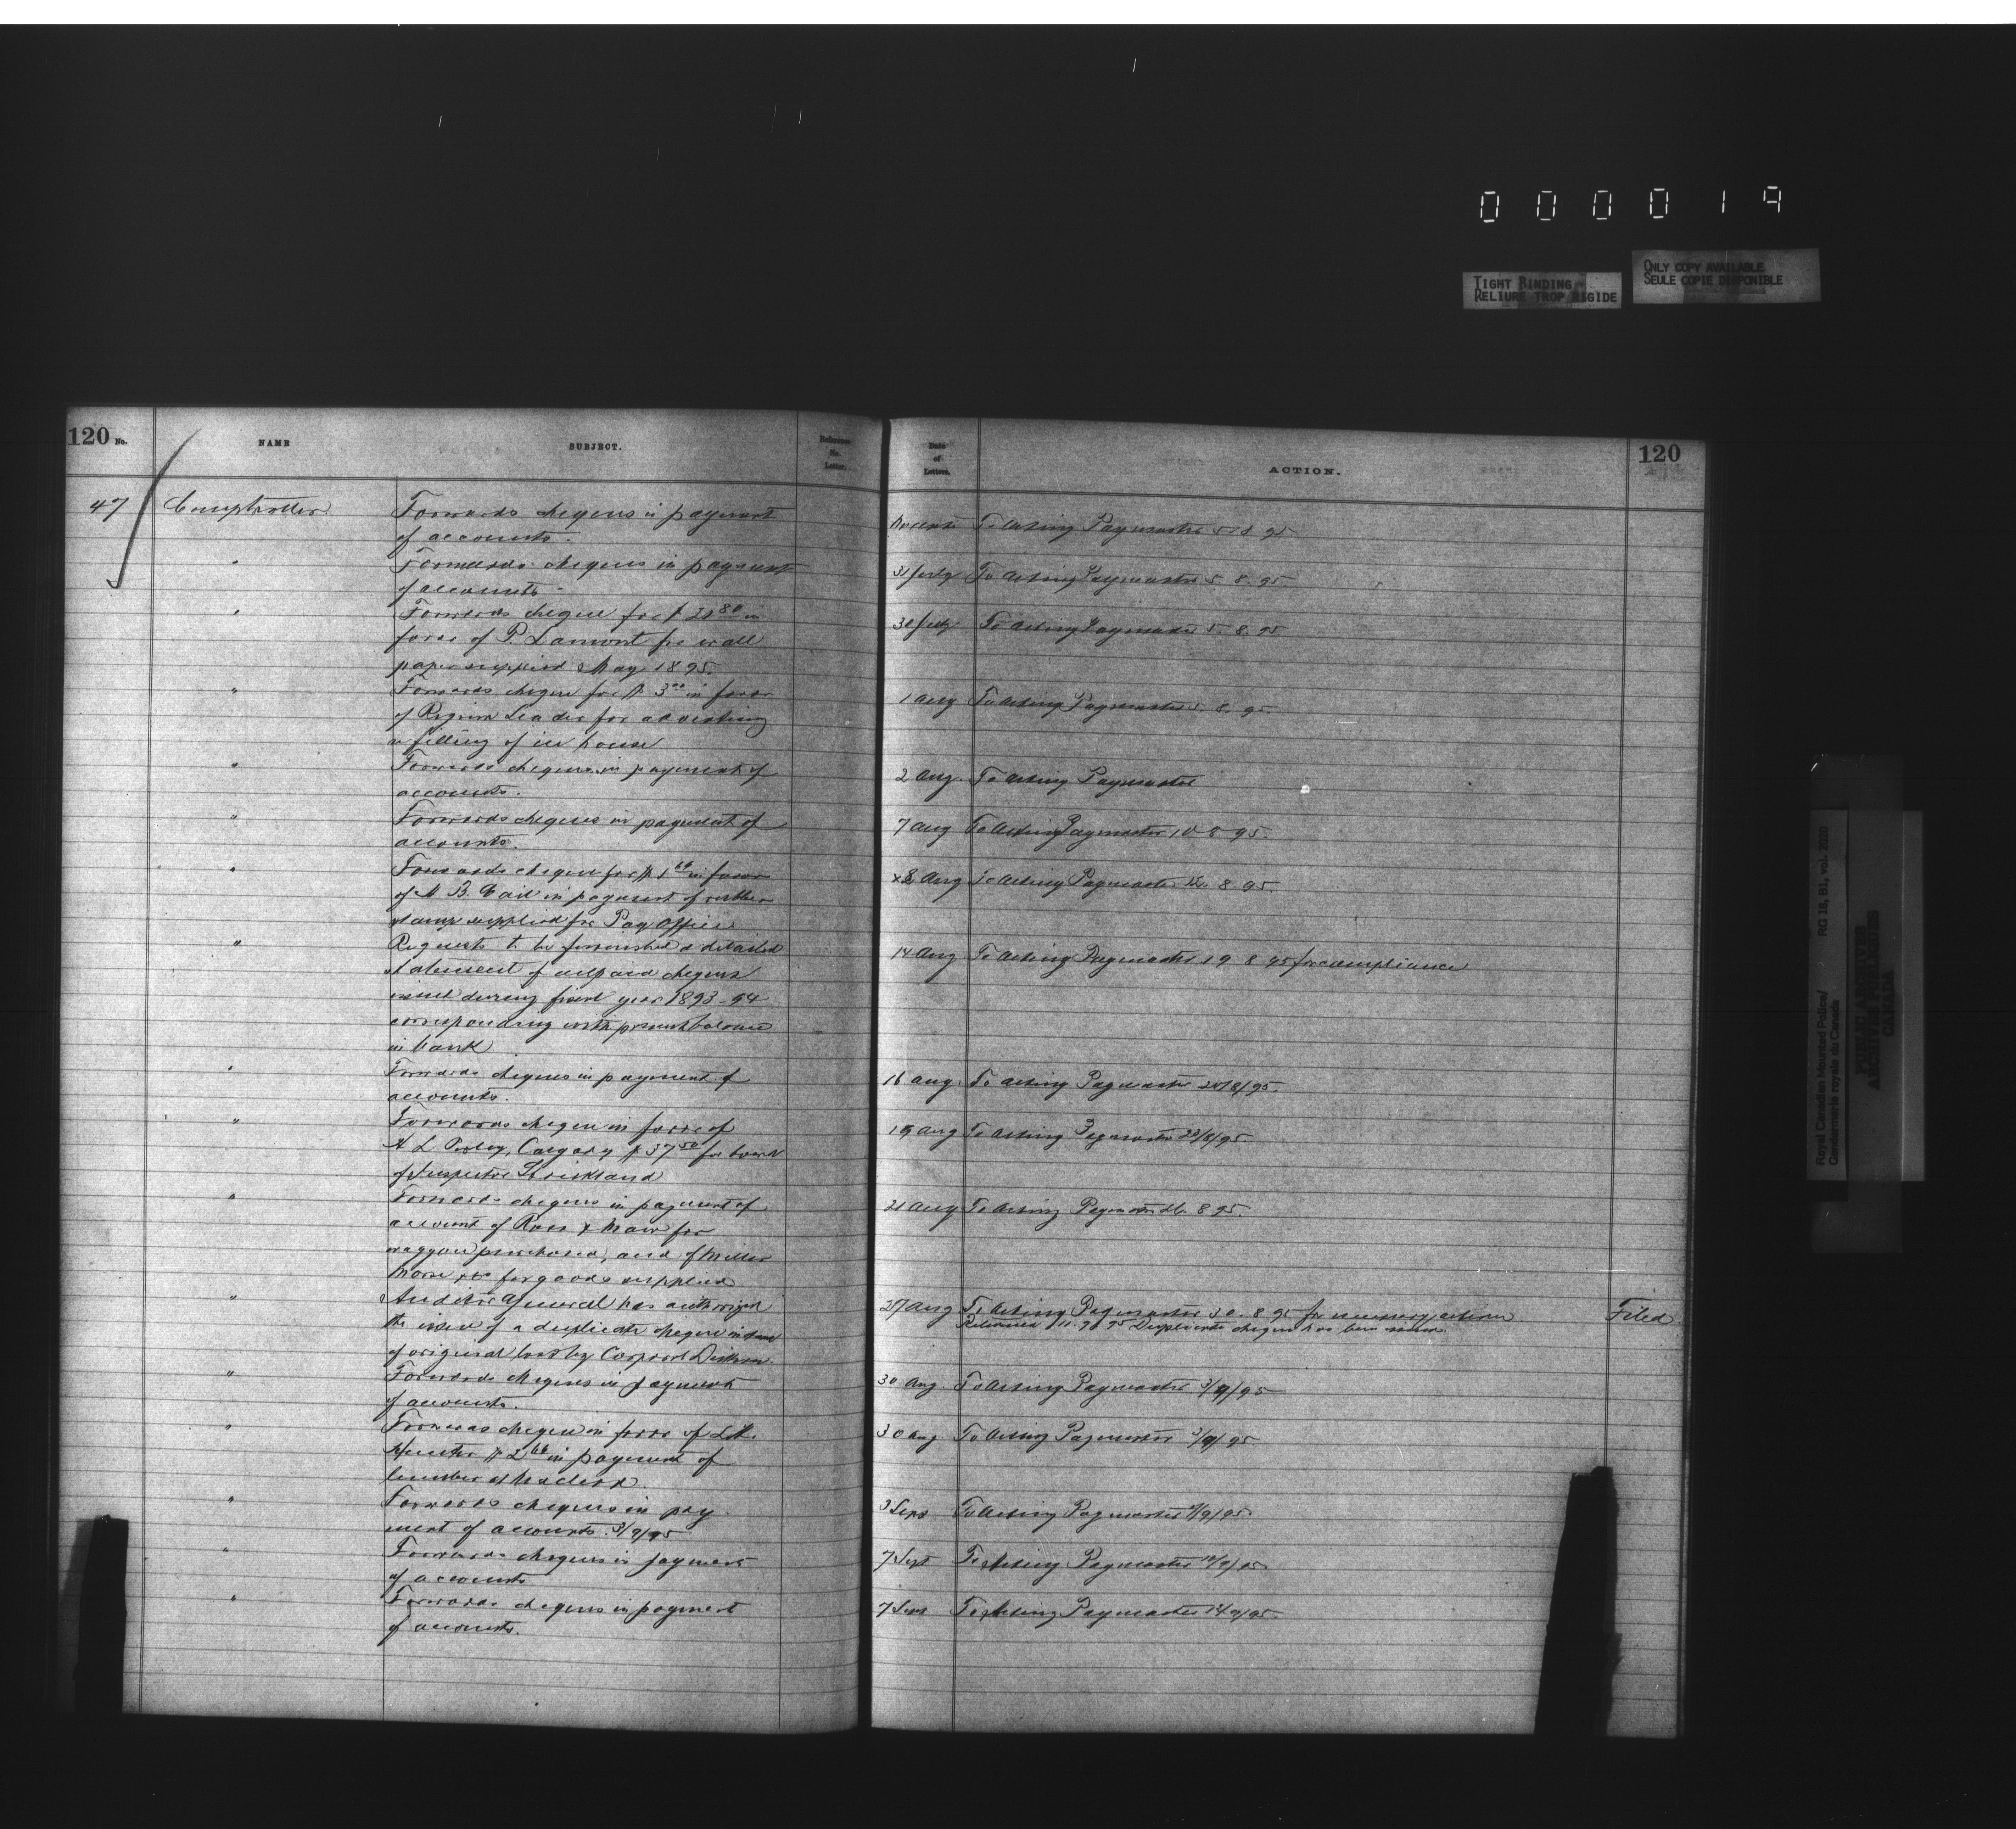 000019
TIGHT BINDING
RELIURE TROP RIGIDE
ONLY COPY AVAILABLE
SEULE COPIE DISPONIBLE
120 No.
NAME
SUBJECT.
Reference No. Letter.
47 Comptroller
Forwards cheques in payment
of accounts.
" Forwards cheques in payment
of accounts.
" Forwards cheque for $ 80 in
favor of P. Lamont for wall
paper supplied May 1895.
" Forwards cheque for $ 3 00 in favor
of Regina Leader for advertising
filling of ice house
" Forwards cheques in payment of
accounts.
" Forwards cheques in payment of
accounts.
" Forwards cheque for $ 1 in favor
of B. in payment of rubber
stamp supplied for Pay Office
" Requests to be furnished a detailed
statement of unpaid cheques
issued during fiscal year 1893-94
corresponding with present balance
in bank
" Forwards cheques in payment of
accounts.
" Forwards cheque in favor of
Calgary $ 37 50 for board
of Inspector Strickland
" Forwards cheques in payment of
account of Ross & Maw for
waggon purchased, and of Miller
Morse & Co for goods supplied
" Auditor General has authorized
the issue of a duplicate cheque in lieu
of original lost by Corporal Dickson
" Forwards cheques in payment
of accounts.
" Forwards cheque in favor of
$ 2 in payment of
lumber at Macleod
" Forwards cheques in pay
ment of accounts. 3/9/95
" Forwards cheques in payment
of accounts
" Forwards cheques in payment
of accounts.
Date of Letters.
ACTION.
120
To Acting Paymaster 5 8 95
31 July To Acting Paymaster 5. 8. 95
30 July To Acting Paymaster 5. 8. 95
1 Aug To Acting Paymaster 5. 8. 95
2 Aug. To Acting Paymaster
7 Aug To Acting Paymaster 10 8 95.
8 Aug To Acting Paymaster 12. 8 95.
14 Aug To Acting Paymaster 19 8 95 for compliance
16 Aug. To Acting Paymaster 20/8/95.
19 Aug To Acting Paymaster 23/8/95
21 Aug To Acting Paymaster 26 8 95.
27 Aug To Acting Paymaster 30. 8 95 for necessary action Filed
Returned 11. 9 95 Duplicate cheque has been issued
30 Aug. To Acting Paymaster 3/9/95
30 Aug. To Acting Paymaster 3/9/95
3 Sept To Acting Paymaster 9/9/95.
7 Sept To Acting Paymaster 12/9/95
7 Sept To Acting Paymaster 14 9/95.
Royal Canadian Mounted Police/
Gendarmerie royale du Canada
RG 18, B1, vol. 2020
PUBLIC ARCHIVES
ARCHIVES PUBLIQUES
CANADA